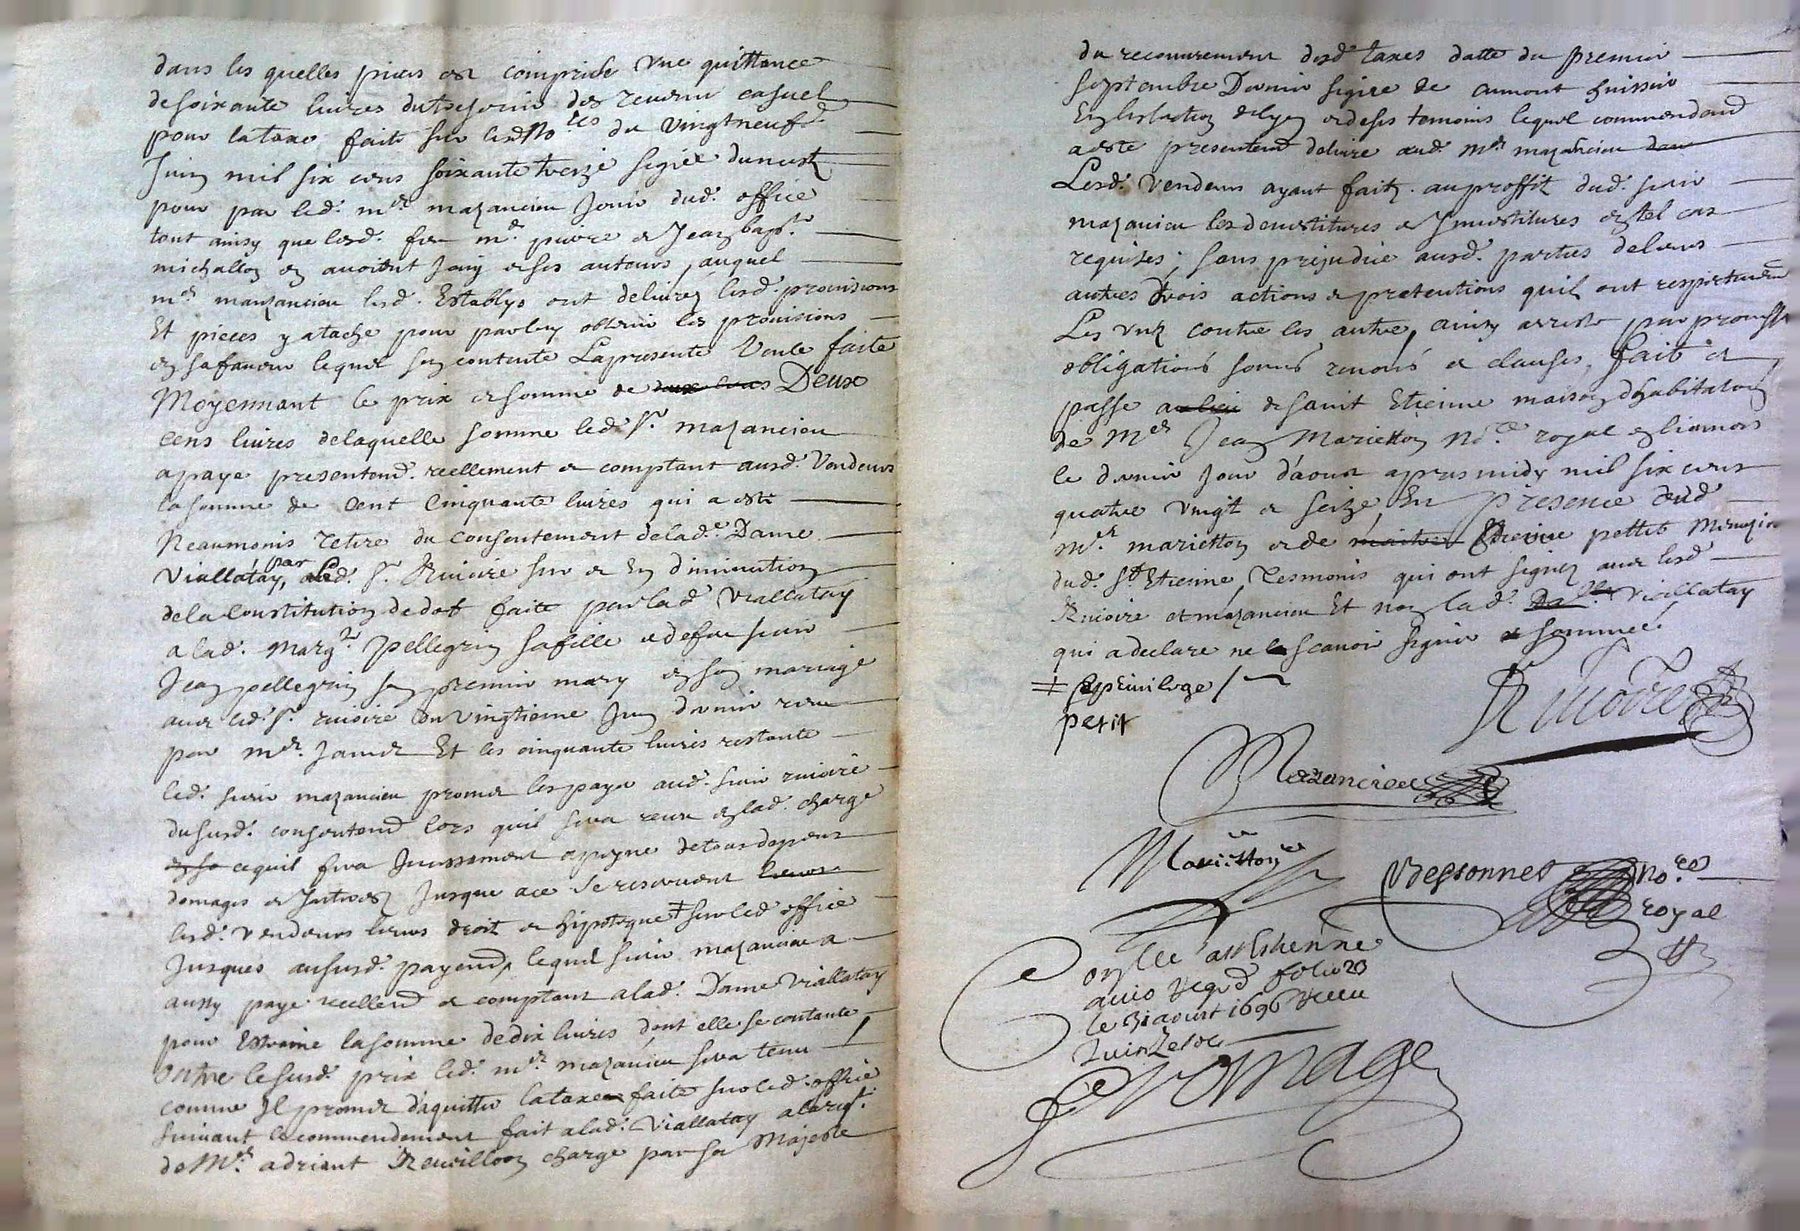 dans les quelles pieces est comprise une quittance
de soixante livres du tresorier des revenu casuel
pour la taxe faite sur lesd. No.res du vingt neufe
Juin mil six cens soixante treize signée
pour par led. mre mazancieu Jouir dud. office
tout ainsy que lesd. feu mr. puivre et Jean bapt.
michallon en avoient Jouy et ses auteurs, auquel
mre mauzancieu lesd. Establys ont delivrez lesd. provisions
Et pieces y atache pour par luy obtenir les provisions
en sa faveur lequel sen contente Lapresente Vente faite
Moyennant le prix et somme de Deux
cens livres delaquelle somme led. Sr. mazancieu
a paye presentemt. reellement et comptant ausd. Vendeurs
la somme de cent Cinquante livres qui a esté
Neaumonis retire du consentement de lad.e Dame
Viallatay, par led. Sr. Rivoire sur et En diminution
de la Constitution de dot faite par lad. Viallatay
a lad. Margte. pellegrin sa fille et de feu sieur
Jean pellegrin son premier mary en son mariage
avec led. Sr. rivoire du vingtieme Juin dernier receu
par mre. Et les cinquante livres restante
led. sieur mazancieu promet les payer aud. sieur rivoire
du susd. consentemt. lors quil sera receu en lad. charge
en sa ce quil fera Incessament a peyne de tous depens
domages et Interestz Jusque a ce se reservent leurs
lesd. vendeurs leurs droit et hipoteque ‡ sur led. office
Jusques au susd. payemt. lequel sieur mazancieu a
aussy paye reellemt. et comptant a lad. Dame Viallatay
pour Estreine la somme de dix livres dont elle se contante
Outre le susd. prix led. mre mazancieu sera tenu
comme Il promet d'aquitter la taxe faite sur led. office
suivant le commendement fait a lad. Viallatay a la reqte.
de Mre. adrient Revillion charge par sa Majesté
du recouvrement desd. taxes datte du premier
septembre Dernier signée de aumont huissier
En lection de lyon et de ses temoins lequel commendemt.
a esté presentemt. delivre aud. Mre mazancieu dans
Lesd. Vendeurs ayant faitz au proffit dud. sieur
mazancieu les devestitures et Jnvestitures en tel cas
requises; sans prejudice ausd. parties de leurs
autres Drois actions et pretentions quil ont respectivemt.
Les unz contre les autre, ainsy arresté par promesse
obligations soumis renons et clauses, fait et
passe au lieu de saint Etienne maison dhabitation
de Mre Jean Marietton No.re royal en lionnois
le dernier Jour d'aoust apres midy mil six cens
quatre vingt et seize En presence dud.
mre. marietton et de maitre Etienne pettit Menuzier
dud. St Etienne, Tesmonis qui ont signez avec lesd.
Rivoire et mazancieu Et non lad. Dlle Viallatay
qui a declare ne le scavoir signer et sommée.
‡ Et privilege /
petit
Rivoire
Mazancieu
Marietton
Bessonnet No.re
royal
Conllé a st Ethenne
avis regd folio 23
le 31 aoust 1696 Receu
Fromage